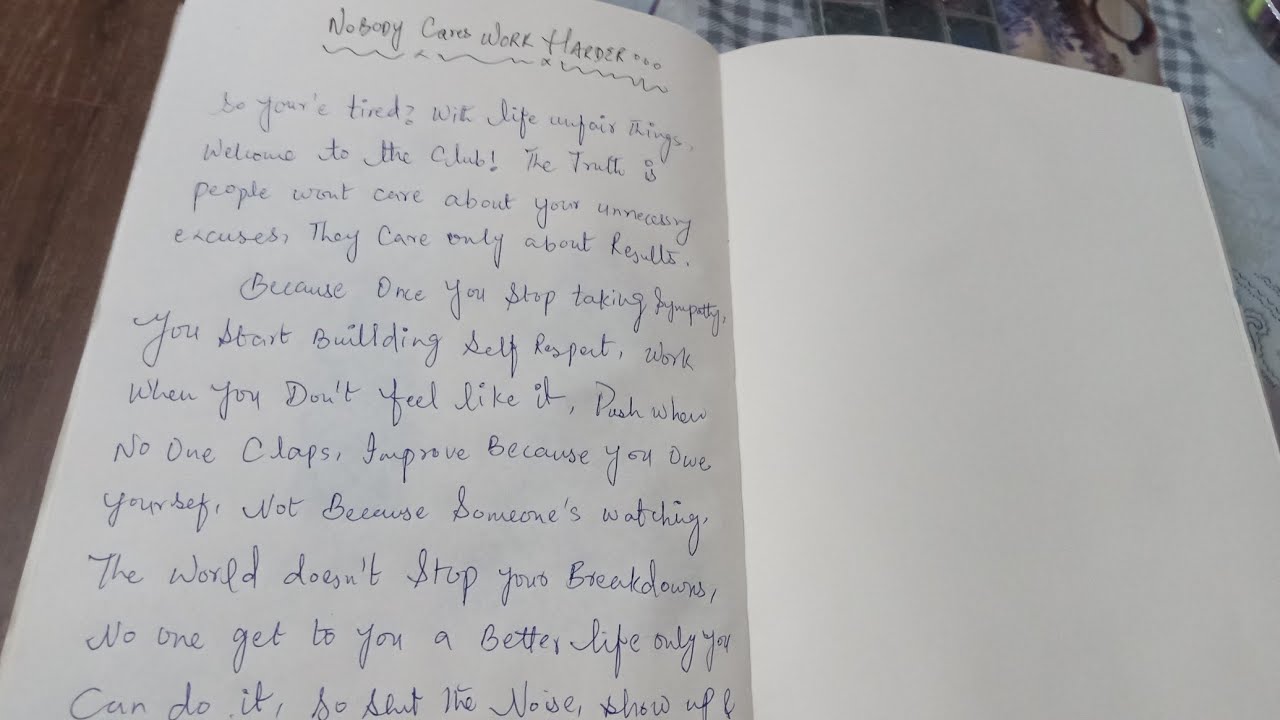 NOBODY Cares WORK HARDER...
So your'e tired? With life unfair Things,
Welcome to the Club! The Truth is
people wont care about your unnecessry
excuses, They Care only about Results.
Because Once You Stop taking Sympathy,
You Start Buillding Self Respect, Work
When You Don't feel like it, Push when
No One Claps, Improve Because you Owe
Yoursef, Not Because Someone's watching,
The World doesn't Stop your Breakdowns,
No one get to you a Better life only you
Can do it, So Shut The Noise, Show up &